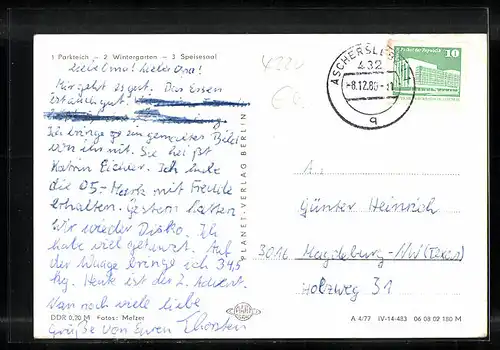 1 Parkteich — 2 Wintergarten — 3 Speisesaal
Liebe Oma! Lieber Opa!
Mir geht es gut. Das Essen
ist auch gut.
Ich bringe ein gemaltes Bild
von ihr mit. Sie heißt
Katrin Eicher. Ich habe
die 05,- Mark mit Freude
erhalten. Gestern hatten
wir wieder Disko. Ich
habe viel getanzt. Auf
der Waage bringe ich 34,5
kg. Heute ist der 2. Advent.
Nun noch viele liebe
Grüße von Euren Thorsten
DDR 0,20 M Fotos: Melzer
PLANET-VERLAG BERLIN
ASCHERSLEBEN
432
-8.12.80
q
Palast der Republik
10
An:
Günter Heinrich
3016 Magdeburg-NW (Texas)
Holzweg 31
A 4/77 IV-14-483 06 08 02 180 M